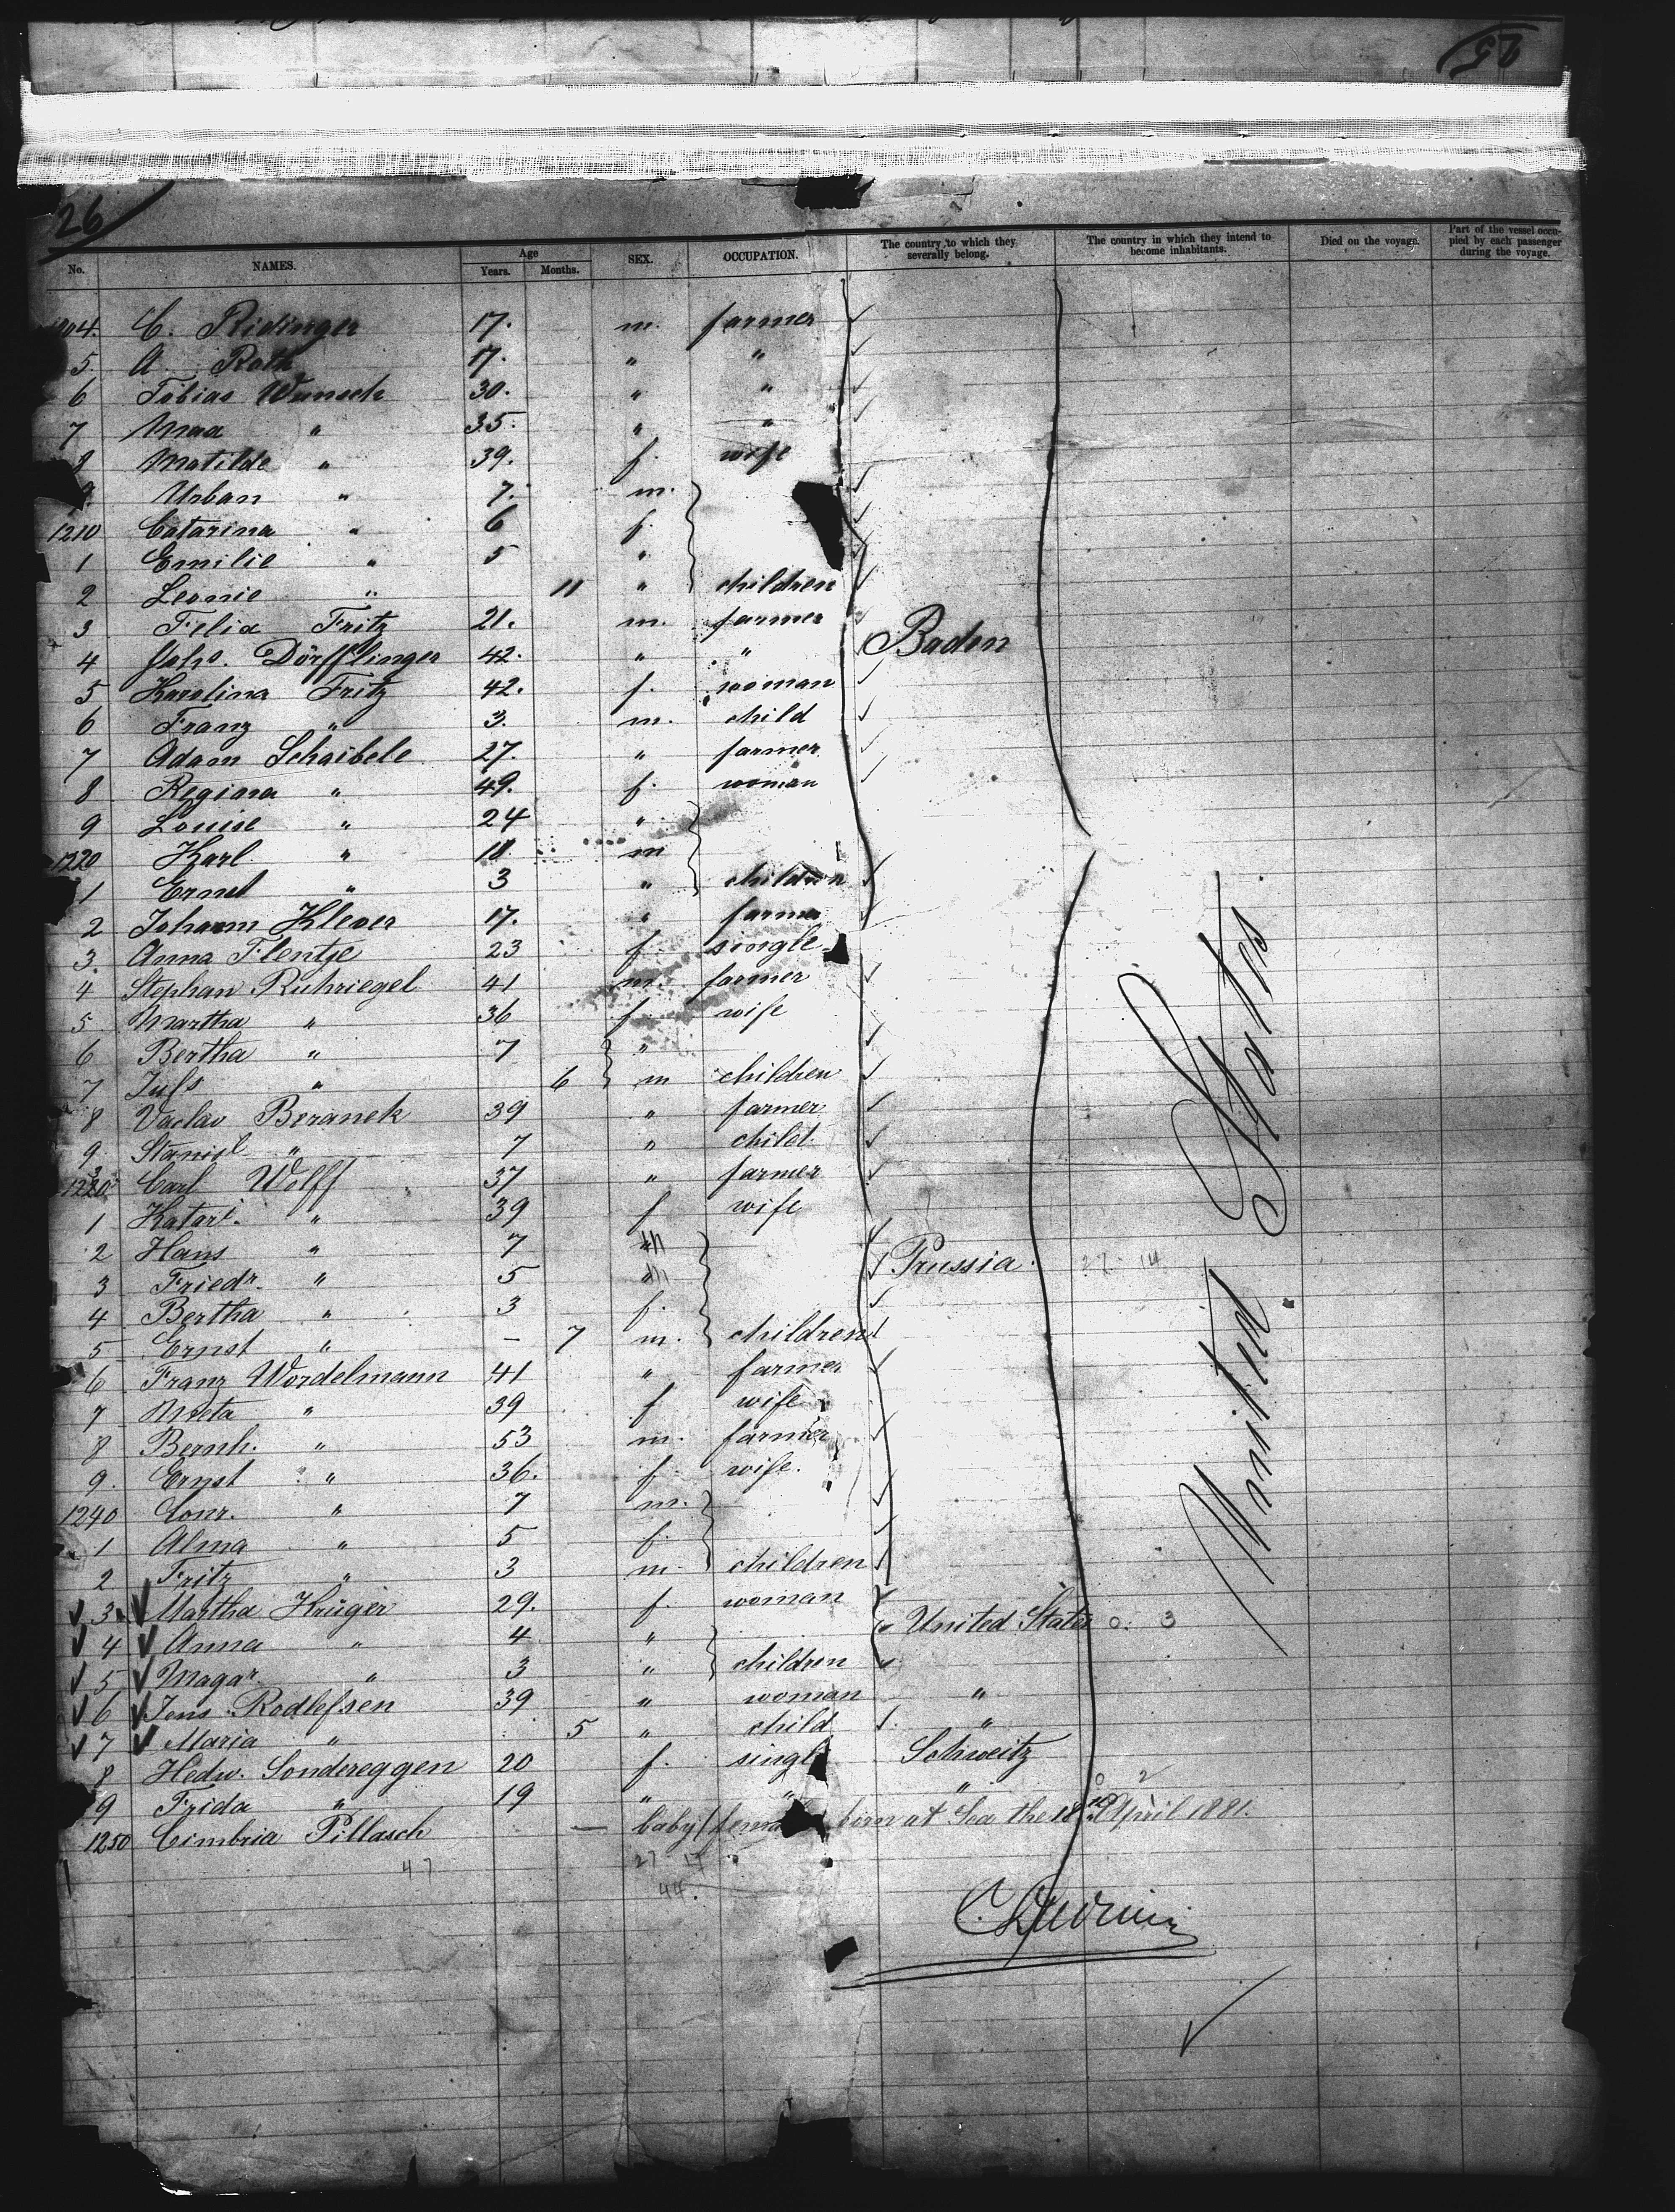 26
No. NAMES. Age Years. Months. SEX. OCCUPATION. The country to which they severally belong. The country in which they intend to become inhabitants. Died on the voyage. Part of the vessel occupied by each passenger during the voyage.
1204. C. Ridinger 17. m. farmer
5 A. Roth 17. " "
6 Tobias Wunsch 30. " "
7 Max " 35. " "
8 Matilde " 39. f. wife
9. Urban " 7. m.
1210 Catarina " 6 f.
1 Emilie " 5 "
2 Leonie " 11 " children
3 Felix Fritz 21. m. farmer Baden
4 Johs. Dörfflinger 42. " "
5 Karolina Fritz 42. f. woman
6 Franz " 3. m. child
7 Adam Schaibele 27. " farmer
8 Regina " 49. f. woman
9 Louise " 24 "
1220 Karl " 11 m
1 Ernst " 3 " children
2 Johann Klever 17. " farmer
3. Anna Flentje 23 f. single
4 Stephan Ruhriegel 41 m. farmer
5 Martha " 36 f. wife
6 Bertha " 7 "
7 Juls " 6 m children
8 Vaclav Beranek 39 " farmer
9. Stanisl " 7 " child
1230 Carl Wolff 37 " farmer
1 Katari. " 39 f wife
2 Hans " 7 m
3 Friedr. " 5 m Prussia 27 - 14
4 Bertha " 3 f.
5 Ernst " - 7 m. children
6 Franz Wordelmann 41 " farmer
7 Meta " 39 f wife
8 Bernh. " 53 m. farmer
9. Ernst " 36. f. wife.
1240 Conr. " 7 m.
1 Alma " 5 f.
2 Fritz " 3 m. children
3. Martha Krüger 29. f. woman
4 Anna " 4 " United States 0. 3
5 Magar. " 3 " children
6 Jens Rodlefsen 39 " woman "
7 Maria " 5 " child "
8 Hedw. Sondereggen 20 f. single Schweitz
9 Frida " 19 " " " 0 2
1250 Cimbria Pillasch — baby (female) born at Sea the 18th April 1881.
United States
47
27 17
44.